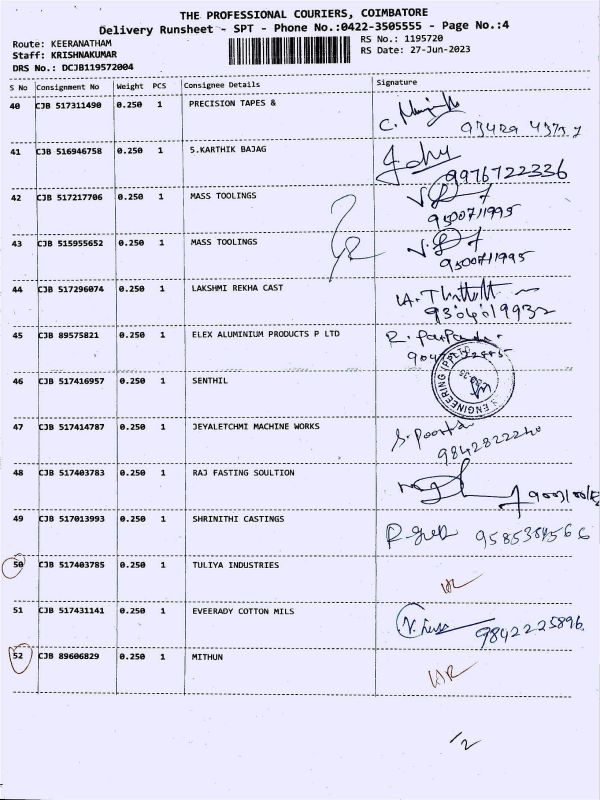 THE PROFESSIONAL COURIERS, COIMBATORE
Delivery Runsheet - SPT - Phone No.:0422-3505555 - Page No.:4
Route: KEERANATHAM
RS No.: 1195720
Staff: KRISHNAKUMAR
RS Date: 27-Jun-2023
DRS No.: DCJB119572004
S No Consignment No Weight PCS Consignee Details Signature
40 CJB 517311490 0.250 1 PRECISION TAPES &
41 CJB 516946758 0.250 1 S.KARTHIK BAJAG
9976722336
42 CJB 517217706 0.250 1 MASS TOOLINGS
9500711995
43 CJB 515955652 0.250 1 MASS TOOLINGS
9500711995
44 CJB 517296074 0.250 1 LAKSHMI REKHA CAST
45 CJB 89575821 0.250 1 ELEX ALUMINIUM PRODUCTS P LTD
46 CJB 517416957 0.250 1 SENTHIL
ENGINEERING
47 CJB 517414787 0.250 1 JEYALETCHMI MACHINE WORKS
9842822240
48 CJB 517403783 0.250 1 RAJ FASTING SOULTION
49 CJB 517013993 0.250 1 SHRINITHI CASTINGS
9585384566
50 CJB 517403785 0.250 1 TULIYA INDUSTRIES
51 CJB 517431141 0.250 1 EVEERADY COTTON MILS
9842225896
52 CJB 89606829 0.250 1 MITHUN